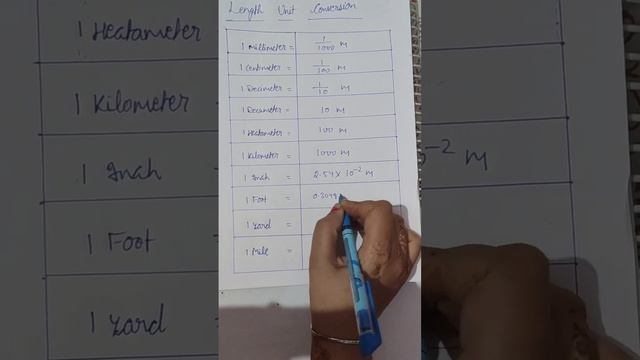 Length Unit Conversion
1 Millimeter = 1/1000 m
1 Centimeter = 1/100 m
1 Decimeter = 1/10 m
1 Decameter = 10 m
1 Hectometer = 100 m
1 Kilometer = 1000 m
1 Inch = 2.54 × 10⁻² m
1 Foot = 0.3048
1 Yard =
1 Mile =
1 Hectameter
1 Kilometer =
1 Inch =
1 Foot =
1 Yard
0⁻² m